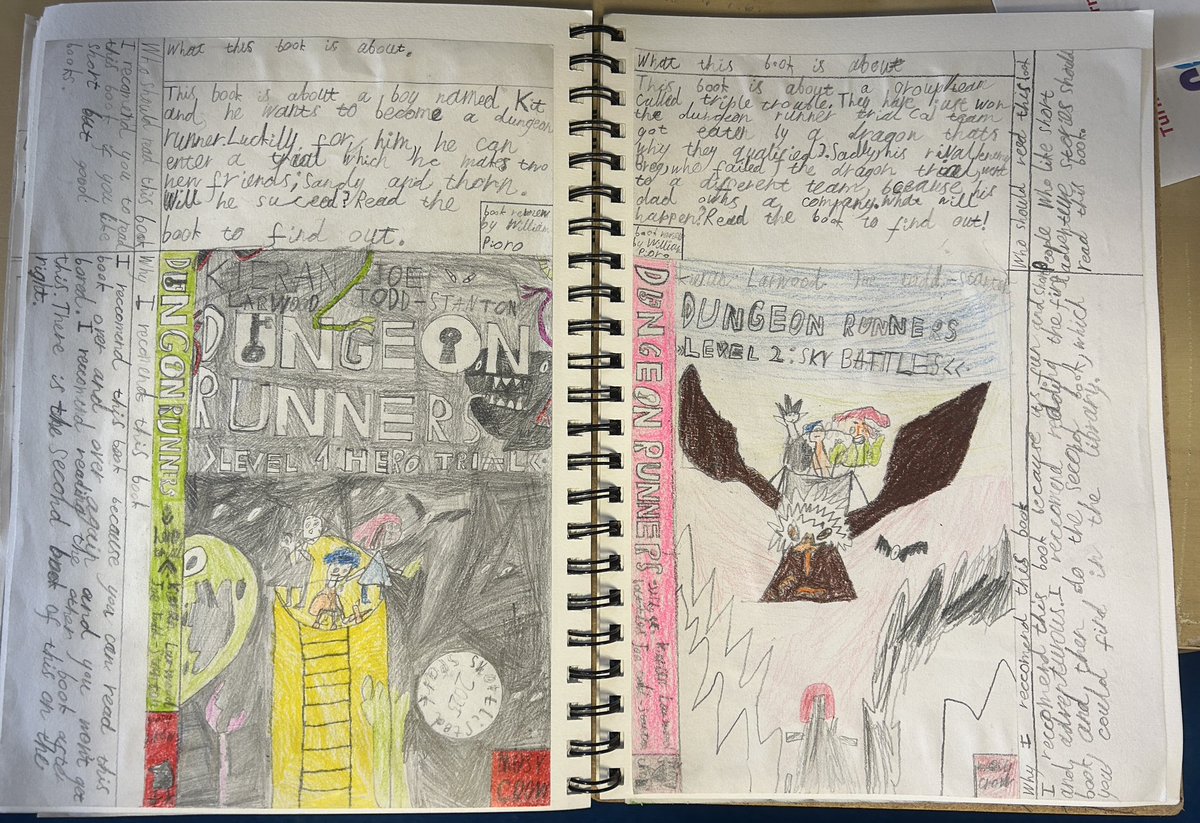 What this book is about.
This book is about a boy named Kit
and he wants to become a dungeon
runner. Luckilly for him, he can
enter a trial which he makes two
new friends; Sandy and thorn.
Will he succeed? Read the
book to find out.
book review
by William
Pioro
Who should read this book
I recomend you to read
this book if you like
short but good
book.
Why I recomend this book
I recomend this book because you can read this
book over and over again and you wont get
bored. I recomend reading the other book after
this. There is the second book of this on the
right.
DUNGONRUNNERS
KIERAN JOE
LARWOOD TODD-STANTON
DUNGEON
RUNNERS
>LEVEL 1 HERO TRIAL<
2023
NOSY
CROW
What this book is about
This book is about a group/team
called triple trouble. They have just won
the dungeon runner trial
got eaten by a dragon thats
why they qualified). Sadly, his rival
who failed the dragon trial, just
to a different team, because his
dad owns a company. What will
happen? Read the book to find out!
book review
by William
Pioro
Who should read this book
People who like short
stories should
read this book.
Why I reccomend this book
I recomend this book because it's fun
and adventurous. I reccomend reading the
book, and then do the second book, which
you could find in the library.
DUNGEON RUNNERS
Larwood todd-stanton
DUNGEON RUNNERS
>LEVEL 2: SKY BATTLES<
NOSY
CROW